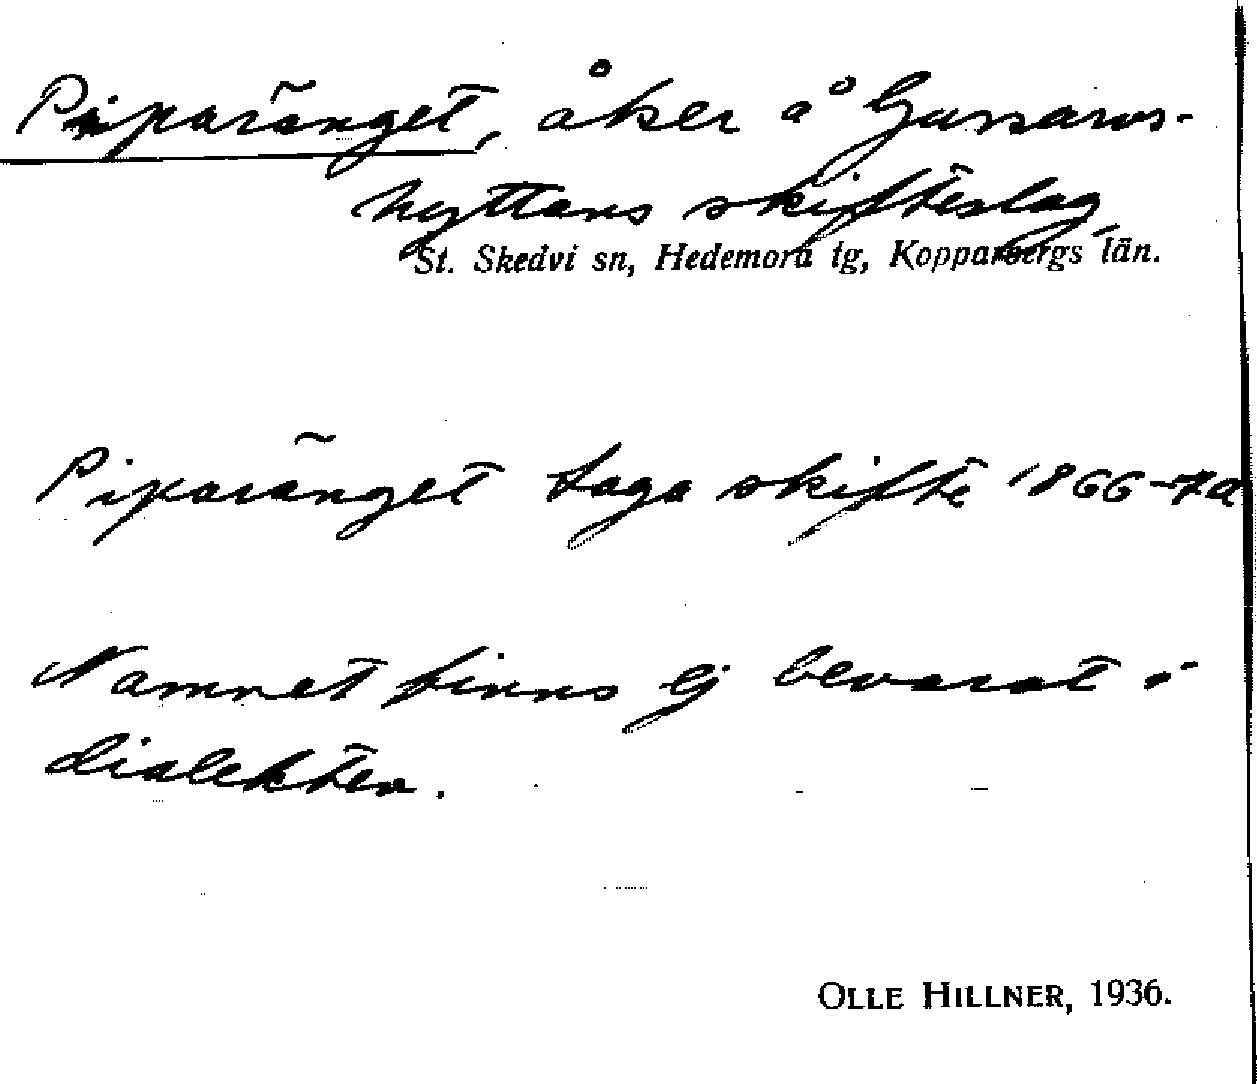 Piparänget, åker å Gussarvs-
hyttans skifteslag
St. Skedvi sn, Hedemora tg, Kopparbergs län.
Piparänget Laga skifte 1866-70
Namnet finns ej bevarat i
dialekten.
OLLE HILLNER, 1936.